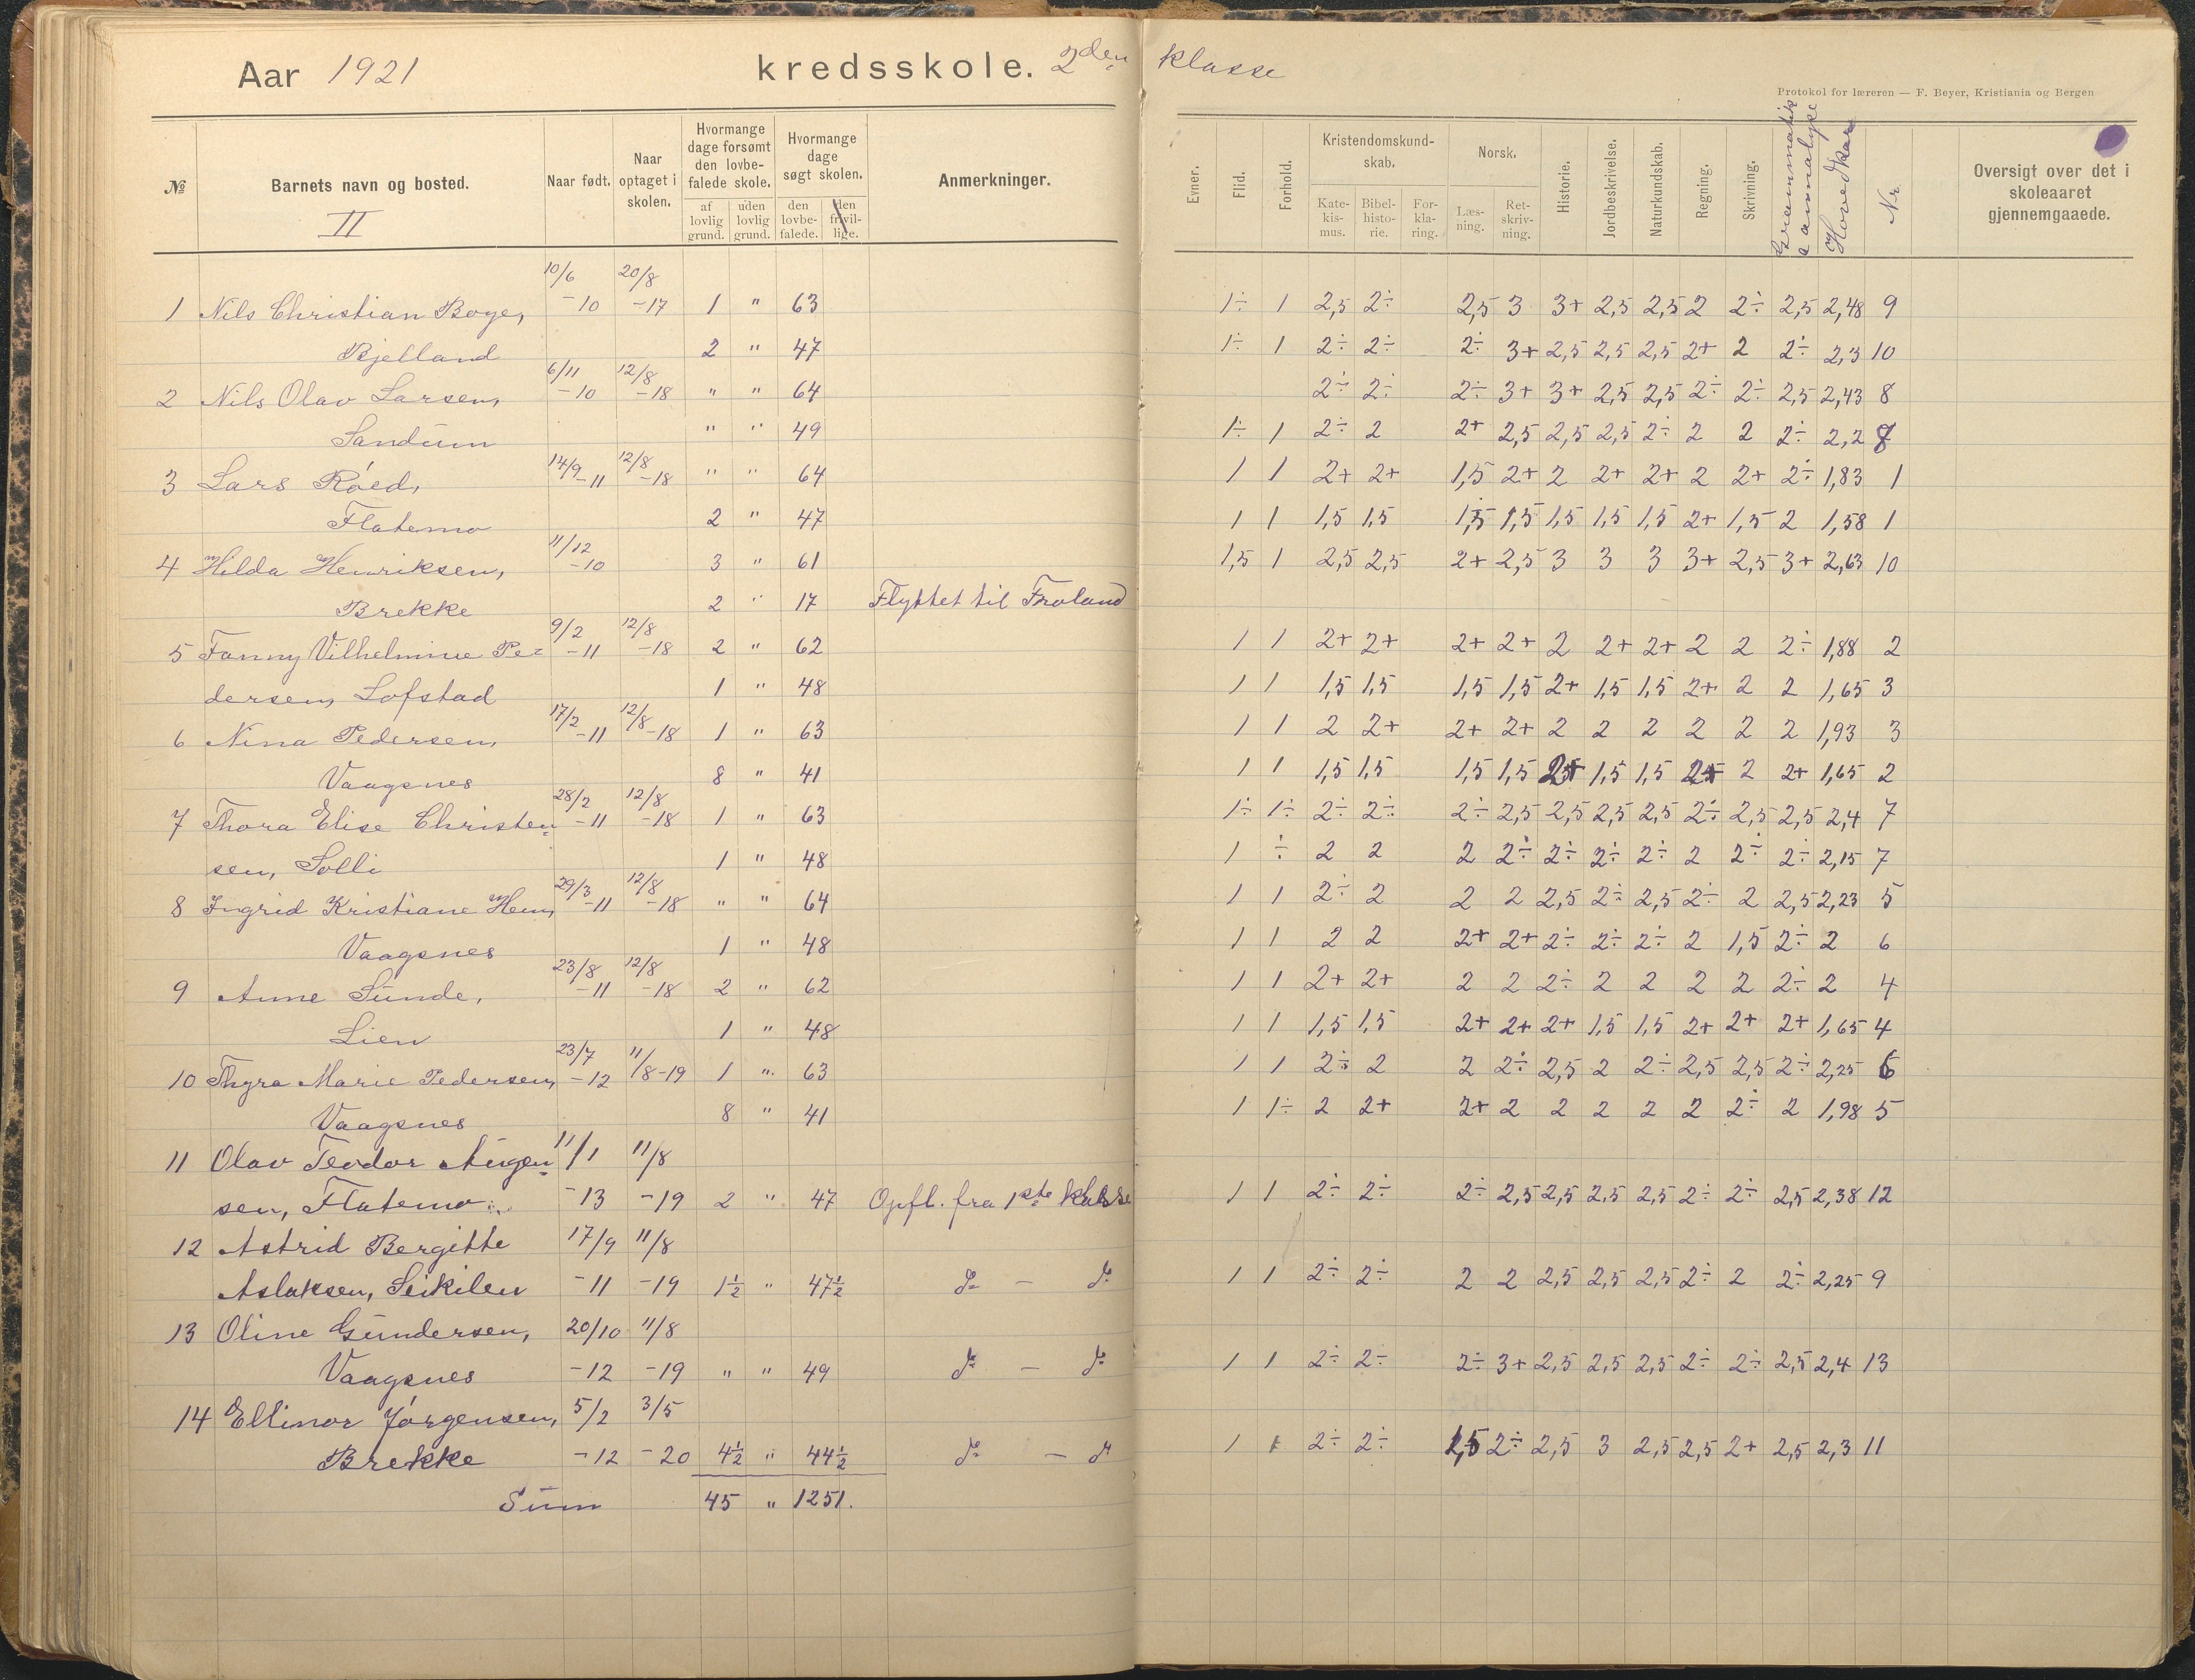 Aar 1921 kredsskole. 2den klasse
Protokol for læreren — F. Beyer, Kristiania og Bergen
№ Barnets navn og bosted. Naar født. Naar optaget i skolen. Hvormange dage forsømt den lovbefalede skole. af lovlig grund. uden lovlig grund. Hvormange dage søgt skolen. den lovbefalede. den frivillige. Anmerkninger. Evner. Flid. Forhold. Kristendomskundskab. Katekismus. Bibelhistorie. Forklaring. Norsk. Læsning. Retskrivning. Historie. Jordbeskrivelse. Naturkundskab. Regning. Skrivning. Grammatik
Hovedkar Nr. Oversigt over det i skoleaaret gjennemgaaede.
II
10/6 20/8
1 Nils Christian Boye, -10 -17 1 " 63 1÷ 1 2,5 2÷ 2,5 3 3+ 2,5 2,5 2 2÷ 2,5 2,48 9
Bjelland 2 " 47 1÷ 1 2÷ 2÷ 2÷ 3+ 2,5 2,5 2,5 2+ 2 2÷ 2,3 10
6/11 12/8
2 Nils Olav Larsen, -10 -18 " " 64 2÷ 2÷ 2÷ 3+ 3+ 2,5 2,5 2÷ 2÷ 2,5 2,43 8
Sandum " " 49 1÷ 1 2÷ 2 2+ 2,5 2,5 2,5 2÷ 2 2 2÷ 2,2 8
14/9 12/8
3 Lars Róed, -11 -18 " " 64 1 1 2+ 2+ 1,5 2+ 2 2+ 2+ 2 2+ 2÷ 1,83 1
Flatemo 2 " 47 1 1 1,5 1,5 1,5 1,5 1,5 1,5 1,5 2+ 1,5 2 1,58 1
11/12
4 Hilda Henriksen, -10 3 " 61 1,5 1 2,5 2,5 2+ 2,5 3 3 3 3+ 2,5 3+ 2,63 10
Brekke 2 " 17 Flyttet til Froland
9/2 12/8
5 Fanny Vilhelmine Pe= -11 -18 2 " 62 1 1 2+ 2+ 2+ 2+ 2 2+ 2+ 2 2 2÷ 1,88 2
dersen, Lofstad 1 " 48 1 1 1,5 1,5 1,5 1,5 2+ 1,5 1,5 2+ 2 2 1,65 3
17/2 12/8
6 Nina Pedersen, -11 -18 1 " 63 1 1 2 2+ 2+ 2+ 2 2 2 2 2 2 1,93 3
Vaagsnes 8 " 41 1 1 1,5 1,5 1,5 1,5 2+ 1,5 1,5 2+ 2 2+ 1,65 2
28/2 12/8
7 Thora Elise Christen= -11 -18 1 " 63 1÷ 1÷ 2÷ 2÷ 2÷ 2,5 2,5 2,5 2,5 2÷ 2,5 2,5 2,4 7
sen, Solli 1 " 48 1 ÷ 2 2 2 2÷ 2÷ 2÷ 2÷ 2 2÷ 2÷ 2,15 7
29/3 12/8
8 Ingrid Kristiane Hem, -11 -18 " " 64 1 1 2÷ 2 2 2 2,5 2÷ 2,5 2÷ 2 2,5 2,23 5
Vaagsnes 1 " 48 1 1 2 2 2+ 2+ 2÷ 2÷ 2÷ 2 1,5 2÷ 2 6
23/8 12/8
9 Anne Sunde, -11 -18 2 " 62 1 1 2+ 2+ 2 2 2÷ 2 2 2 2 2÷ 2 4
Lien 1 " 48 1 1 1,5 1,5 2+ 2+ 2+ 1,5 1,5 2+ 2+ 2+ 1,65 4
23/7 11/8
10 Thyra Marie Pedersen, -12 -19 1 " 63 1 1 2÷ 2 2 2÷ 2,5 2 2÷ 2,5 2,5 2÷ 2,25 6
Vaagsnes 8 " 41 1 1÷ 2 2+ 2+ 2 2 2 2 2 2÷ 2 1,98 5
11 Olav Teodor Aagen= 11/1 11/8
sen, Flatemo -13 -19 2 " 47 Opfl. fra 1ste klasse 1 1 2÷ 2÷ 2÷ 2,5 2,5 2,5 2,5 2÷ 2÷ 2,5 2,38 12
12 Astrid Bergitte 17/9 11/8
Aslaksen, Leikilen -11 -19 1½ " 47½ do — do 1 1 2÷ 2÷ 2 2 2,5 2,5 2,5 2÷ 2 2÷ 2,25 9
13 Oline Gundersen, 20/10 11/8
Vaagsnes -12 -19 " " 49 do — do 1 1 2÷ 2÷ 2÷ 3+ 2,5 2,5 2,5 2÷ 2÷ 2,5 2,4 13
14 Ellinor Jørgensen, 5/2 3/5
Brekke -12 -20 4½ " 44½ do — do 1 1 2÷ 2÷ 1,5 2÷ 2,5 3 2,5 2,5 2+ 2,5 2,3 11
Sum 45 " 1251.